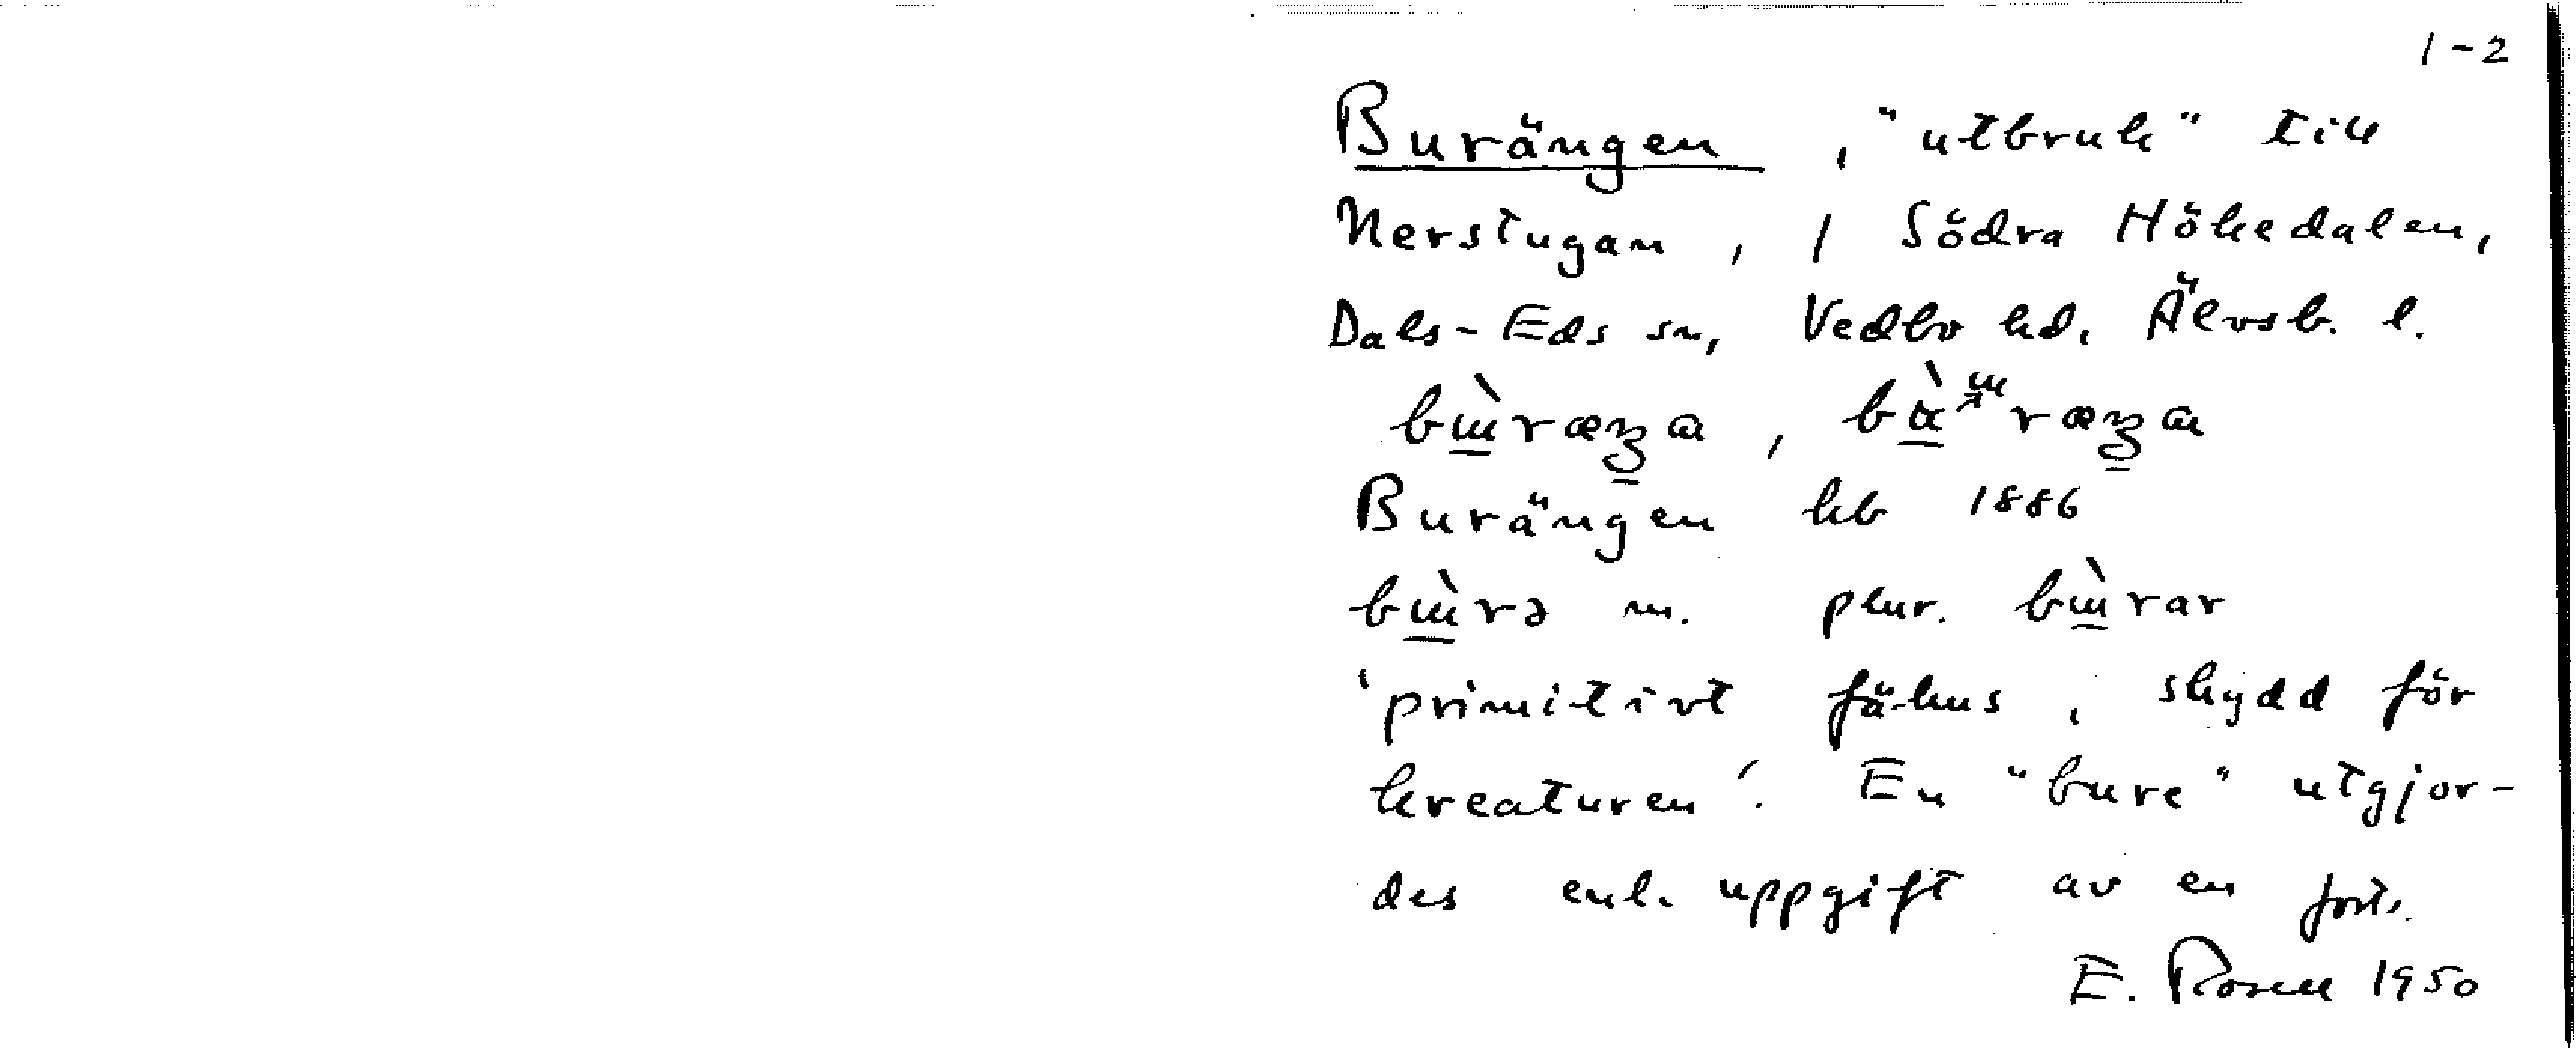 1-2
Burängen, "utbruk" till
Nerstugan, 1 Södra Hökedalen,
Dals-Eds sn, Vedbo hd. Älvsb. l.
Burängen kb 1886
bɯ̀rə m. plur. bɯ̀rar
'primitivt fähus, skydd för
kreaturen'. En "bure" utgjor-
des enl. uppgift av en forts.
E. Rosell 1950